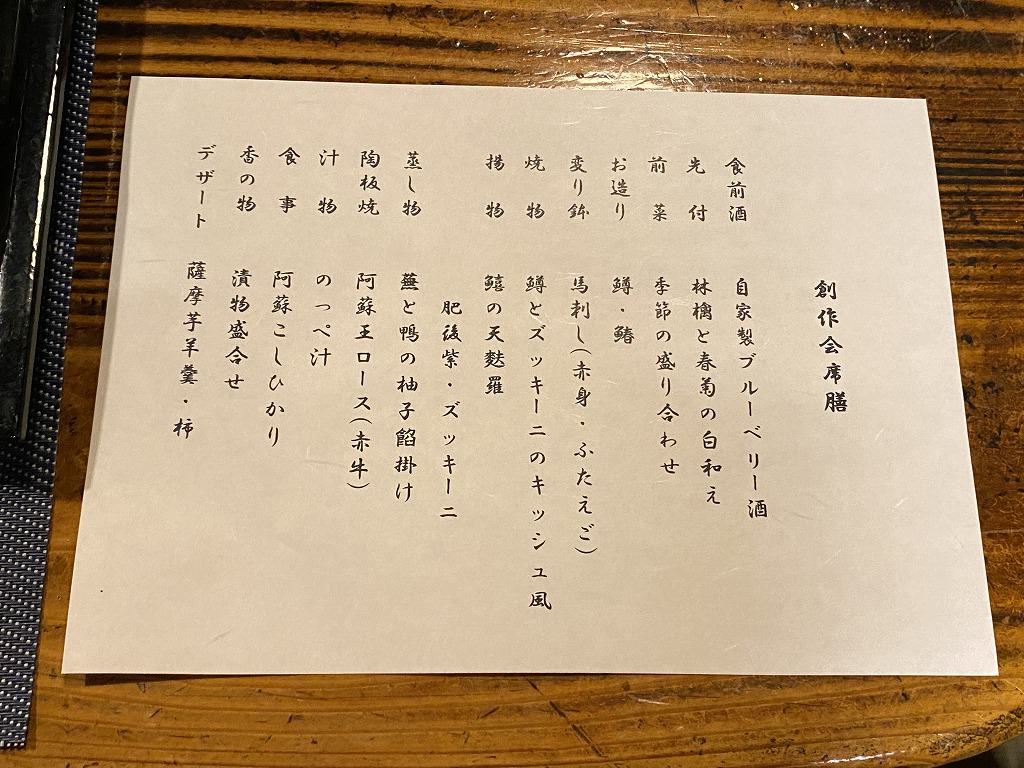 創作会席膳
食前酒 自家製ブルーベリー酒
先付 林檎と春菊の白和え
前菜 季節の盛り合わせ
お造り 鱒・鰆
変り鉢 馬刺し(赤身・ふたえご)
焼物 鱒とズッキーニのキッシュ風
揚物 鱚の天麩羅
肥後紫・ズッキーニ
蒸し物 蕪と鴨の柚子餡掛け
陶板焼 阿蘇王ロース(赤牛)
汁物 のっぺ汁
食事 阿蘇こしひかり
香の物 漬物盛合せ
デザート 薩摩芋羊羹・柿